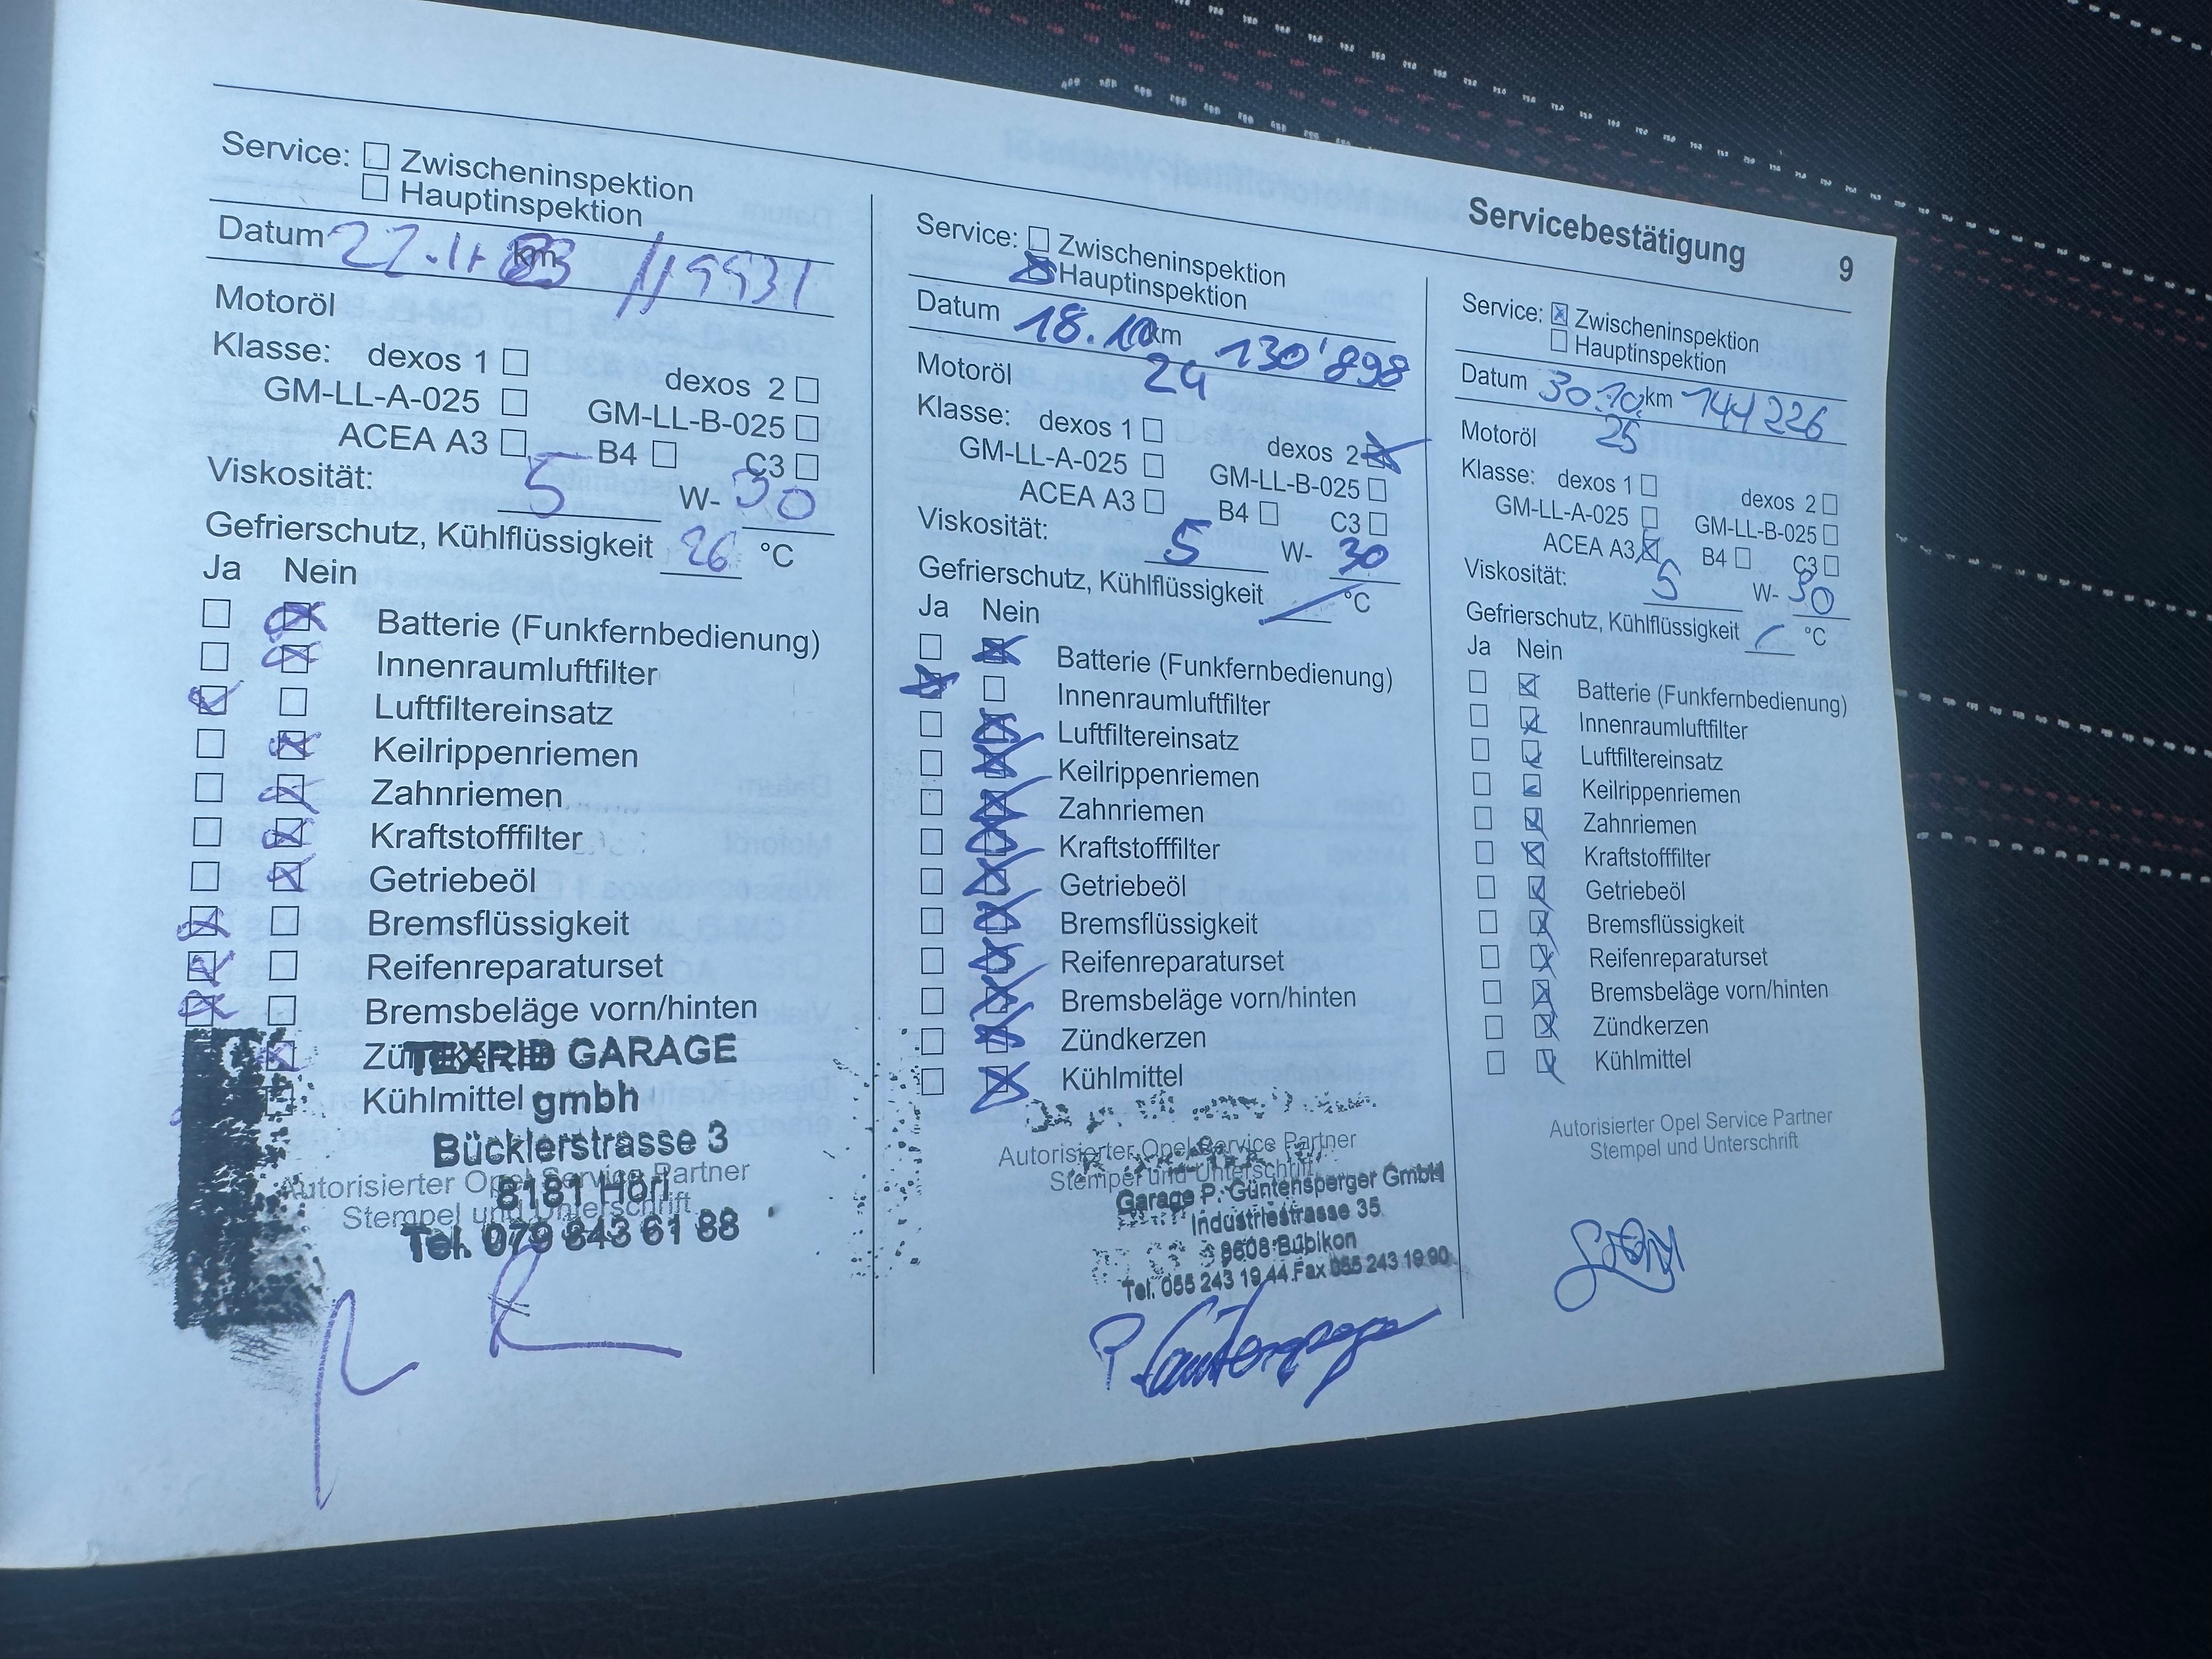 Servicebestätigung 9
Service: Zwischeninspektion
Hauptinspektion
Datum 22.11 km 119931
Motoröl
Klasse: dexos 1 dexos 2
GM-LL-A-025 GM-LL-B-025
ACEA A3 B4 C3
Viskosität: 5 W- 30
Gefrierschutz, Kühlflüssigkeit 26 °C
Ja Nein
Batterie (Funkfernbedienung)
Innenraumluftfilter
Luftfiltereinsatz
Keilrippenriemen
Zahnriemen
Kraftstofffilter
Getriebeöl
Bremsflüssigkeit
Reifenreparaturset
Bremsbeläge vorn/hinten
Zündkerzen
Kühlmittel
Autorisierter Opel Service Partner
Stempel und Unterschrift
TEXRID GARAGE
gmbh
Bücklerstrasse 3
8181 Höri
Tel. 079 843 61 88
Service: Zwischeninspektion
Hauptinspektion
Datum 18.10 km 130'898
24
Motoröl
Klasse: dexos 1 dexos 2
GM-LL-A-025 GM-LL-B-025
ACEA A3 B4 C3
Viskosität: 5 W- 30
Gefrierschutz, Kühlflüssigkeit °C
Ja Nein
Batterie (Funkfernbedienung)
Innenraumluftfilter
Luftfiltereinsatz
Keilrippenriemen
Zahnriemen
Kraftstofffilter
Getriebeöl
Bremsflüssigkeit
Reifenreparaturset
Bremsbeläge vorn/hinten
Zündkerzen
Kühlmittel
Autorisierter Opel Service Partner
Stempel und Unterschrift
Garage P. Güntensperger GmbH
Industriestrasse 35
8608 Bubikon
Tel. 055 243 19 44 Fax 055 243 19 90
Service: Zwischeninspektion
Hauptinspektion
Datum 30.10. km 144226
25
Motoröl
Klasse: dexos 1 dexos 2
GM-LL-A-025 GM-LL-B-025
ACEA A3 B4 C3
Viskosität: 5 W- 30
Gefrierschutz, Kühlflüssigkeit °C
Ja Nein
Batterie (Funkfernbedienung)
Innenraumluftfilter
Luftfiltereinsatz
Keilrippenriemen
Zahnriemen
Kraftstofffilter
Getriebeöl
Bremsflüssigkeit
Reifenreparaturset
Bremsbeläge vorn/hinten
Zündkerzen
Kühlmittel
Autorisierter Opel Service Partner
Stempel und Unterschrift